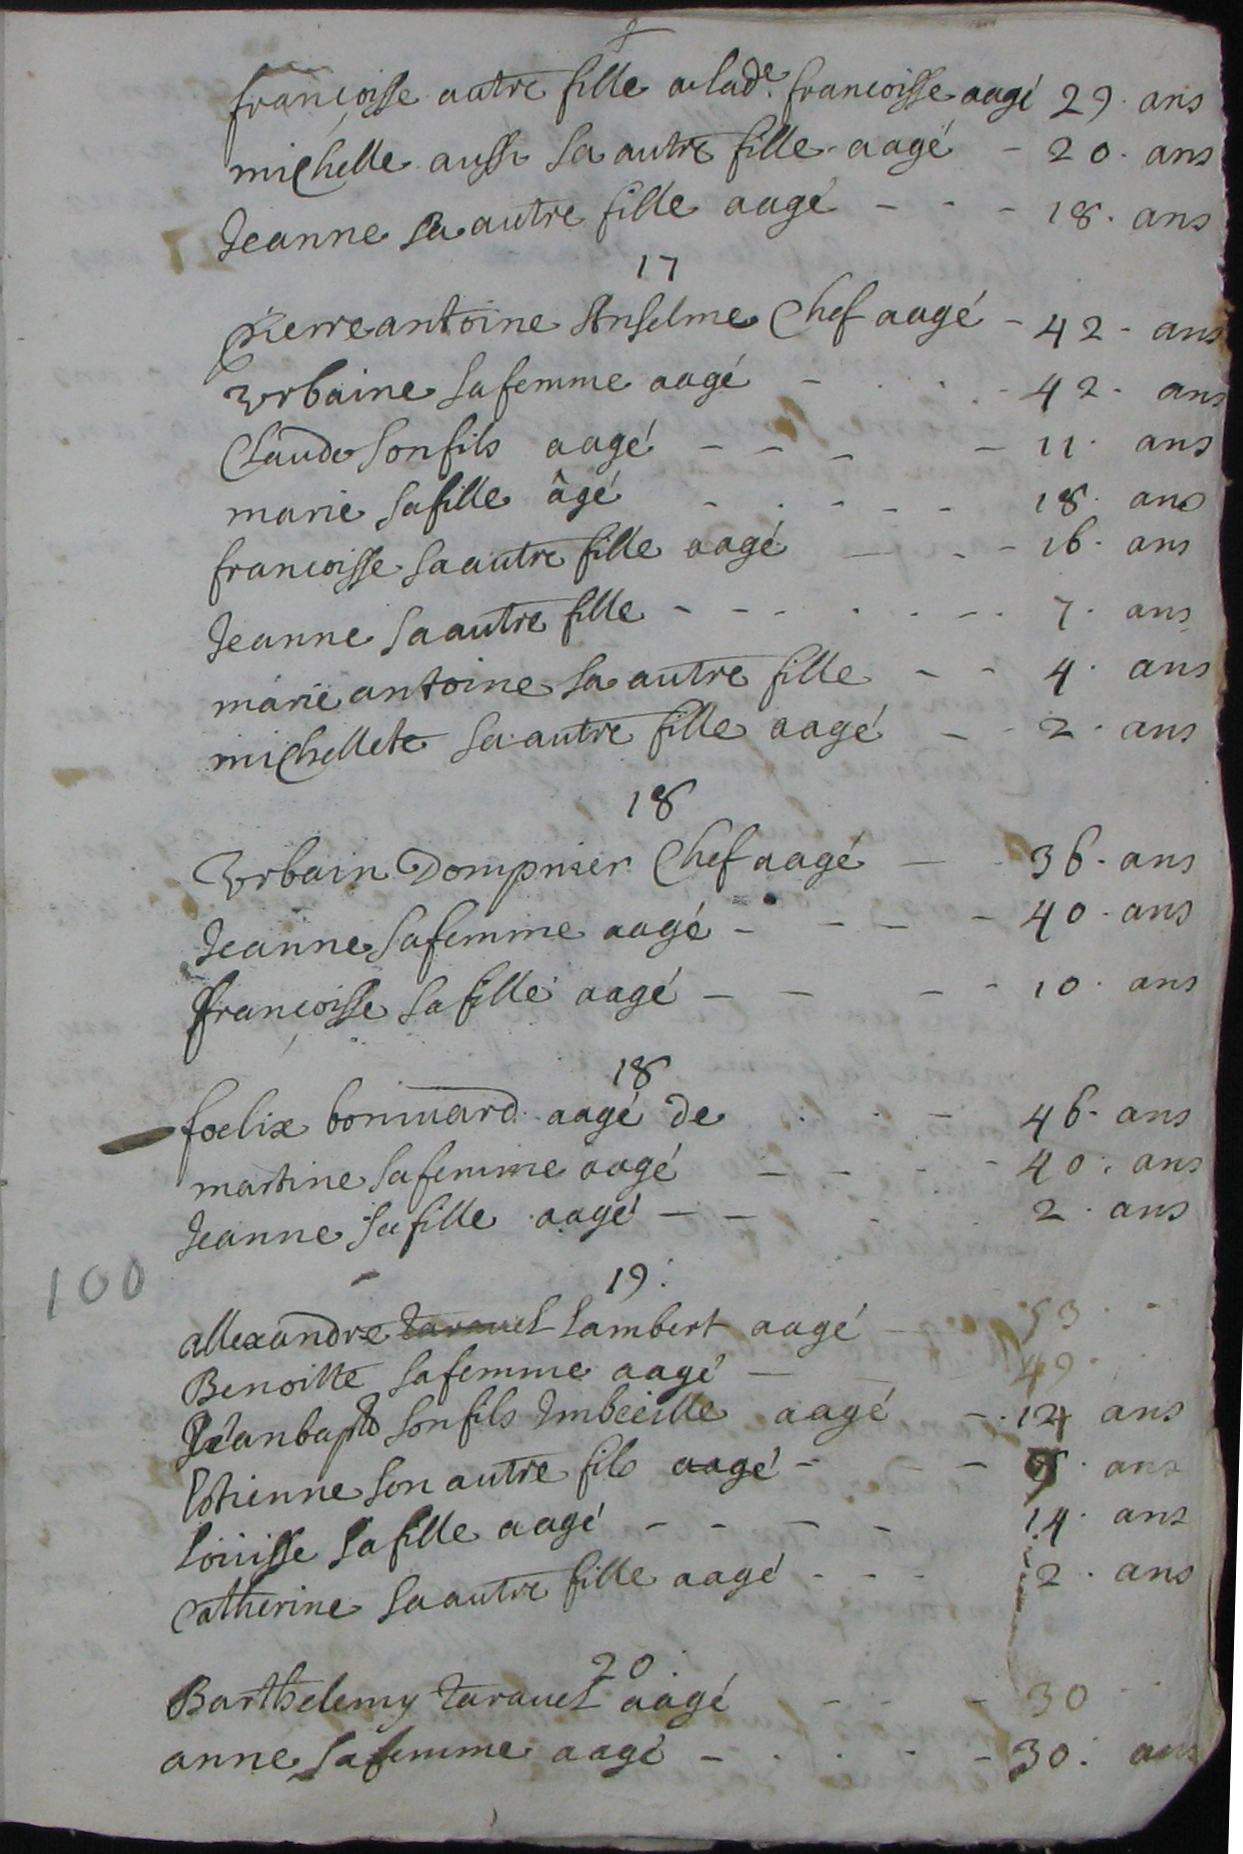 françoisse autre fille a lad.e francoisse aagé 29. ans
michelle aussi sa autre fille aagé - 20. ans
Jeanne sa autre fille aagé - - - 18. ans
17
Pierre antoine Anselme Chef aagé - 42 - ans
Vrbaine sa femme aagé - . . - 42 - ans
Claude son fils aagé - - - - 11. ans
marie sa fille âgé - . - - - 18. ans
francoisse sa autre fille aagé - - - 16. ans
Jeanne sa autre fille - - - . . - - 7. ans
marie antoine sa autre fille - - 4. ans
michellete sa autre fille aagé - - 2. ans
18
Vrbain Dompnier Chef aagé - - 36. ans
Jeanne sa femme aagé - - - - 40. ans
françoisse sa fille aagé - - - - 10. ans
18
foelix bonnuard aagé de . . - 46. ans
martine sa femme aagé - - . - - 40. ans
Jeanne sa fille aagé - - . . 2. ans
100
19.
allexandre taravel lambert aagé - 53. -
Benoitte sa femme aagé - - 49.
Jeanbapte son fils Imbecille aagé - . 12 ans
Estienne son autre fils aagé - - - ans
louisse sa fille aagé - - - - 14. ans
Catherine sa autre fille aagé - - - 2. ans
20.
Barthelemy taravel aagé - - - 30 - -
anne sa femme aagé - . . . - 30. ans